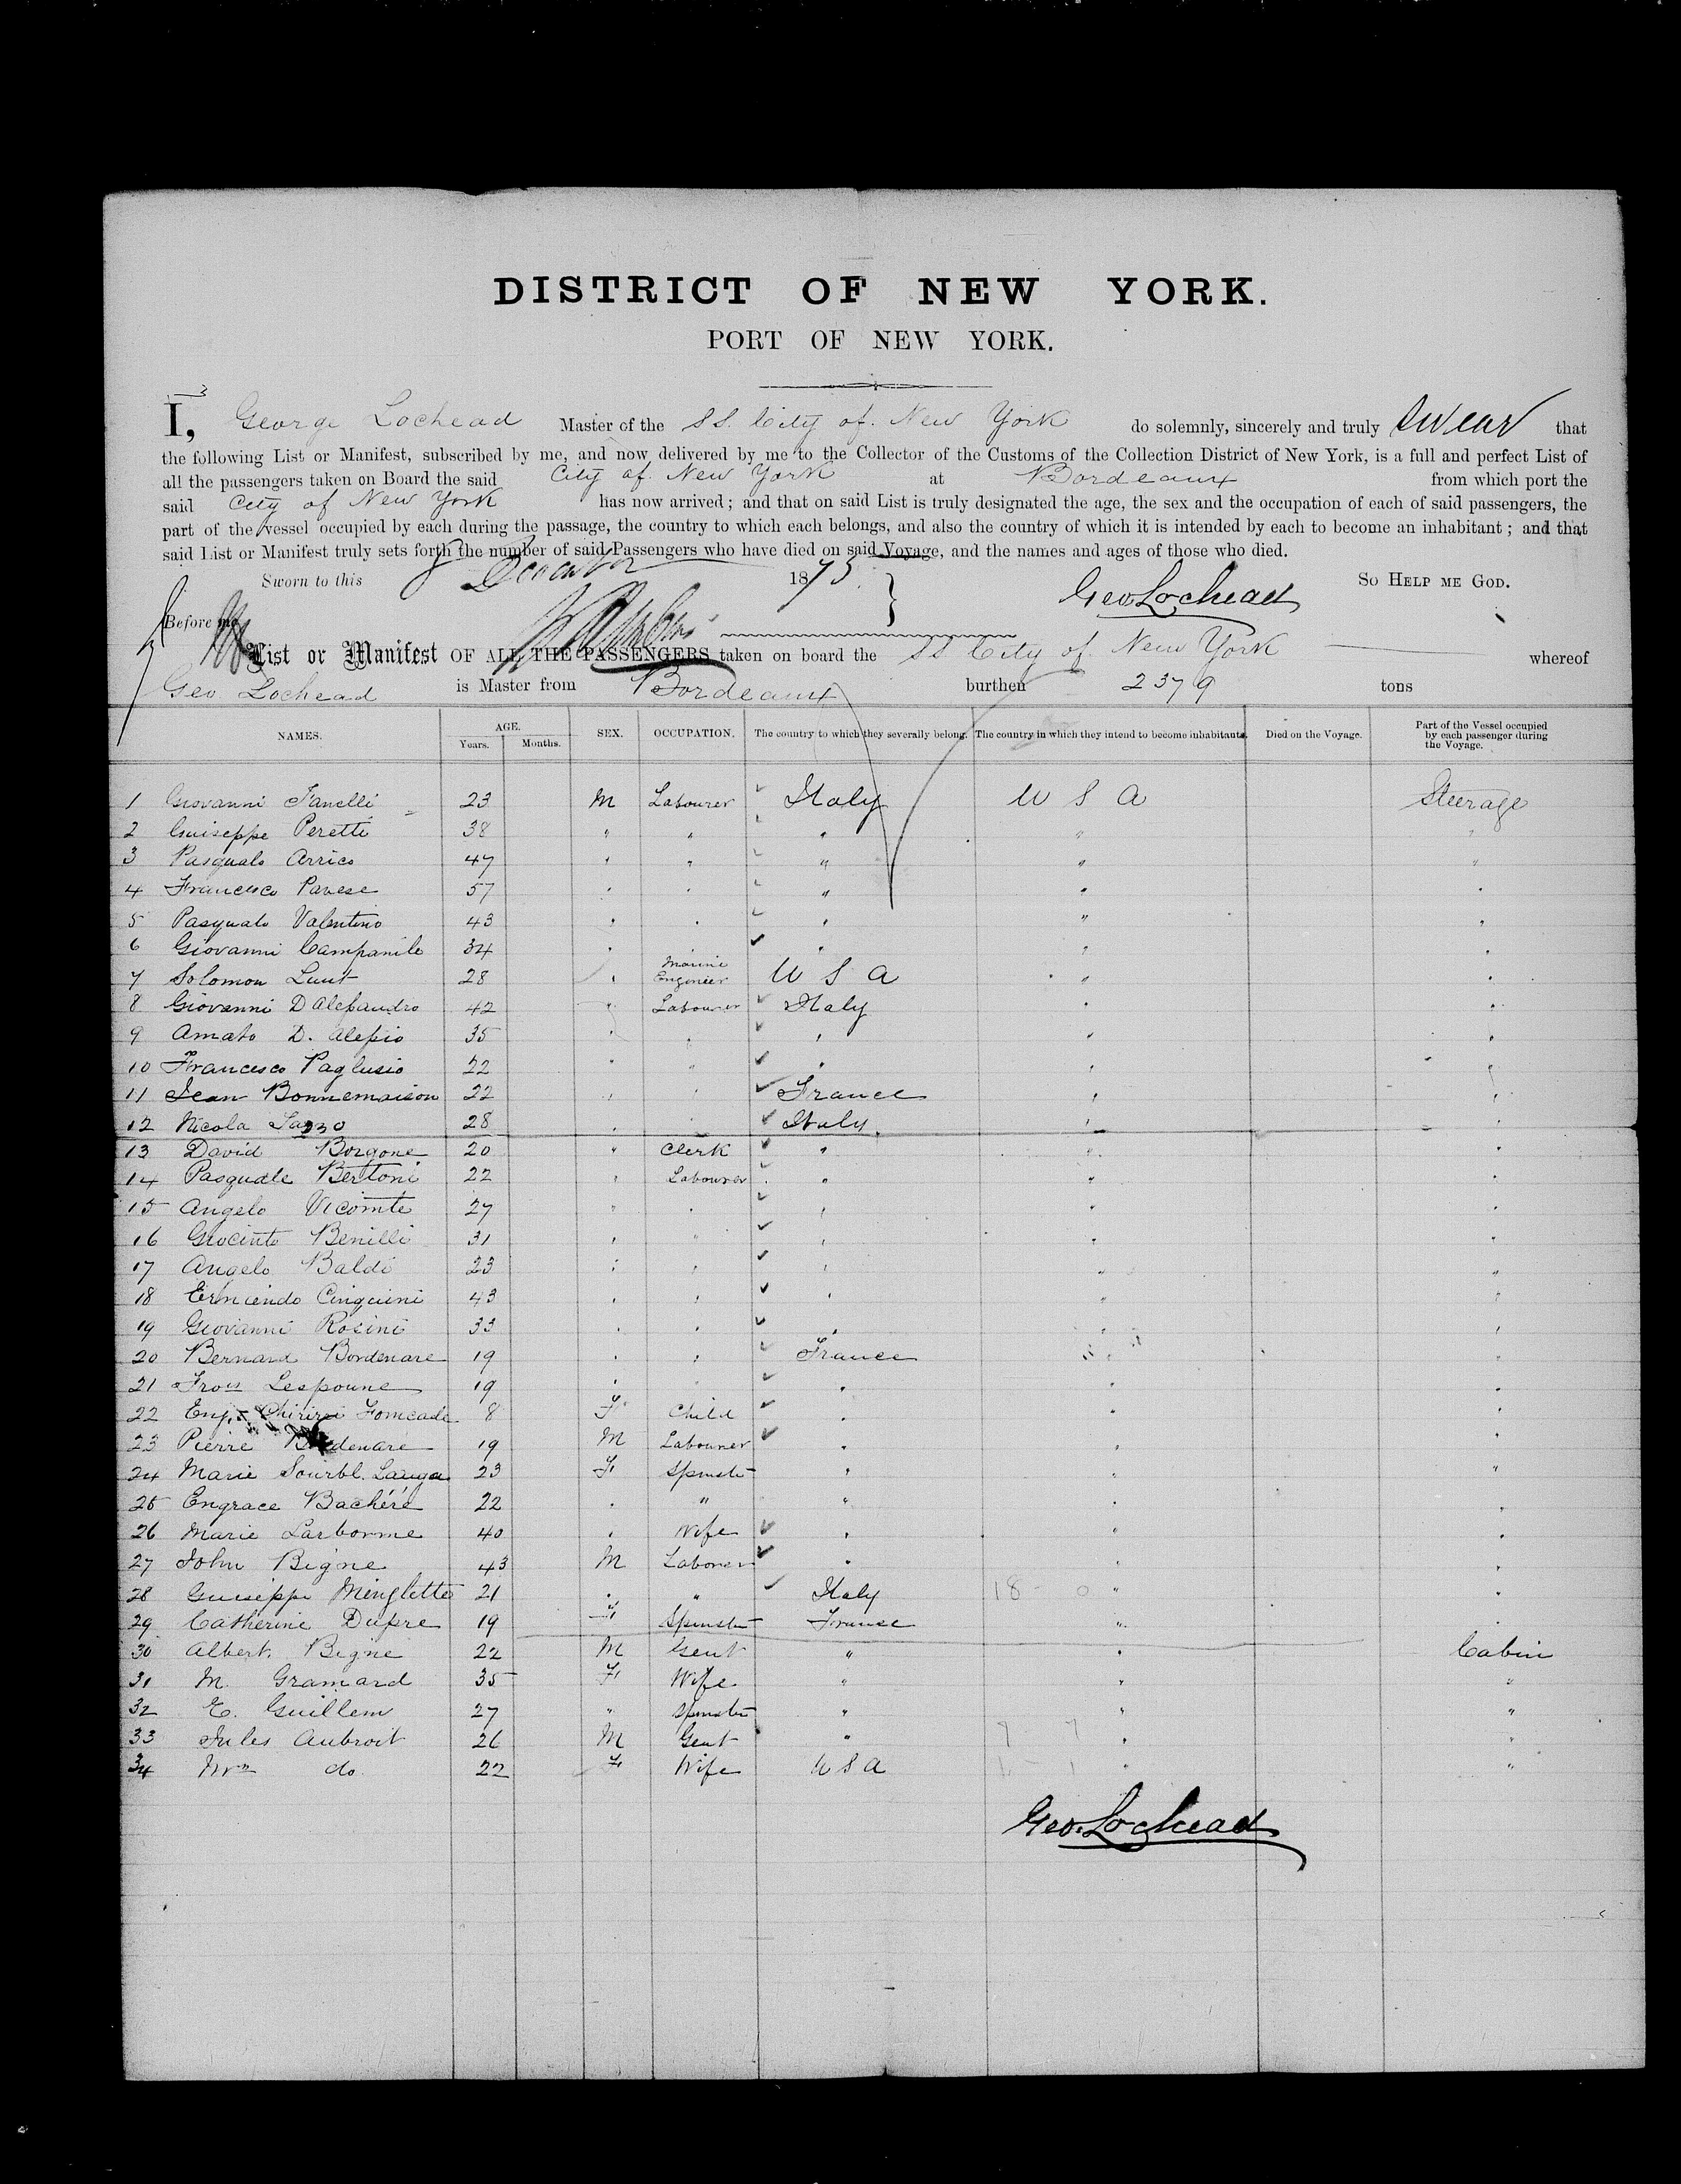 DISTRICT OF NEW YORK.
PORT OF NEW YORK.
3
I, George Lochead Master of the SS. City of New York do solemnly, sincerely and truly swear that
the following List or Manifest, subscribed by me, and now delivered by me to the Collector of the Customs of the Collection District of New York, is a full and perfect List of
all the passengers taken on Board the said City of New York at Bordeaux from which port the
said City of New York has now arrived; and that on said List is truly designated the age, the sex and the occupation of each of said passengers, the
part of the vessel occupied by each during the passage, the country to which each belongs, and also the country of which it is intended by each to become an inhabitant; and that
said List or Manifest truly sets forth the number of said Passengers who have died on said Voyage, and the names and ages of those who died.
Sworn to this 1875 So HELP ME GOD.
Geo Lochead
Before me
List or Manifest OF ALL THE PASSENGERS taken on board the SS City of New York whereof
Geo Lochead is Master from Bordeaux burthen 2379 tons
NAMES. AGE. Years. Months. SEX. OCCUPATION. The country to which they severally belong. The country in which they intend to become inhabitants. Died on the Voyage. Part of the Vessel occupied by each passenger during the Voyage.
1 Giovanni Fanelli 23 M Labourer Italy U S A Steerage
2 Guiseppe Peretti 38 " " " " "
3 Pasquale Arrico 47 " " " " "
4 Francesco Pavese 57 " " " " "
5 Pasquale Valentino 43 " " " " "
6 Giovanni Campanile 34 " " " " "
7 Solomon Lunt 28 " Marine Engineer U S A " "
8 Giovanni D Alessandro 42 " Labourer Italy " "
9 Amato D. Alesio 35 " " " " "
10 Francesco Paglusio 22 " " " " "
11 Jean Bonnemaison 22 " " France " "
12 Nicola 28 " " Italy " "
13 David Borgone 20 " Clerk " " "
14 Pasquale Bertoni 22 " Labourer " " "
15 Angelo Vicomte 27 " " " " "
16 Giocinto Benilli 31 " " " " "
17 Angelo Baldi 23 " " " " "
18 Cinquini 43 " " " " "
19 Giovanni Rosini 33 " " " " "
20 Bernard Bordenare 19 " " France " "
21 Frois Lespoune 19 " " " " "
22 8 F Child " " "
23 Pierre Bordenare 19 M Labourer " " "
24 Marie Sourbl. Lauga 23 F Spinster " " "
25 Engrace Bachéré 22 " " " " "
26 Marie Larborme 40 " Wife " " "
27 John Bigne 43 M Laborer " " "
28 Guiseppe Minglette 21 " " Italy 18 0 " "
29 Catherine Dupre 19 F Spinster France " "
30 Albert. Bigne 22 M Gent " " Cabin
31 M. Gramard 35 F Wife " " "
32 E. Guillem 27 " Spinster " " "
33 Jules Aubroit 26 M Gent " 7 7 " "
34 Mrs do 22 F Wife U S A 1 1 " "
Geo. Lochead